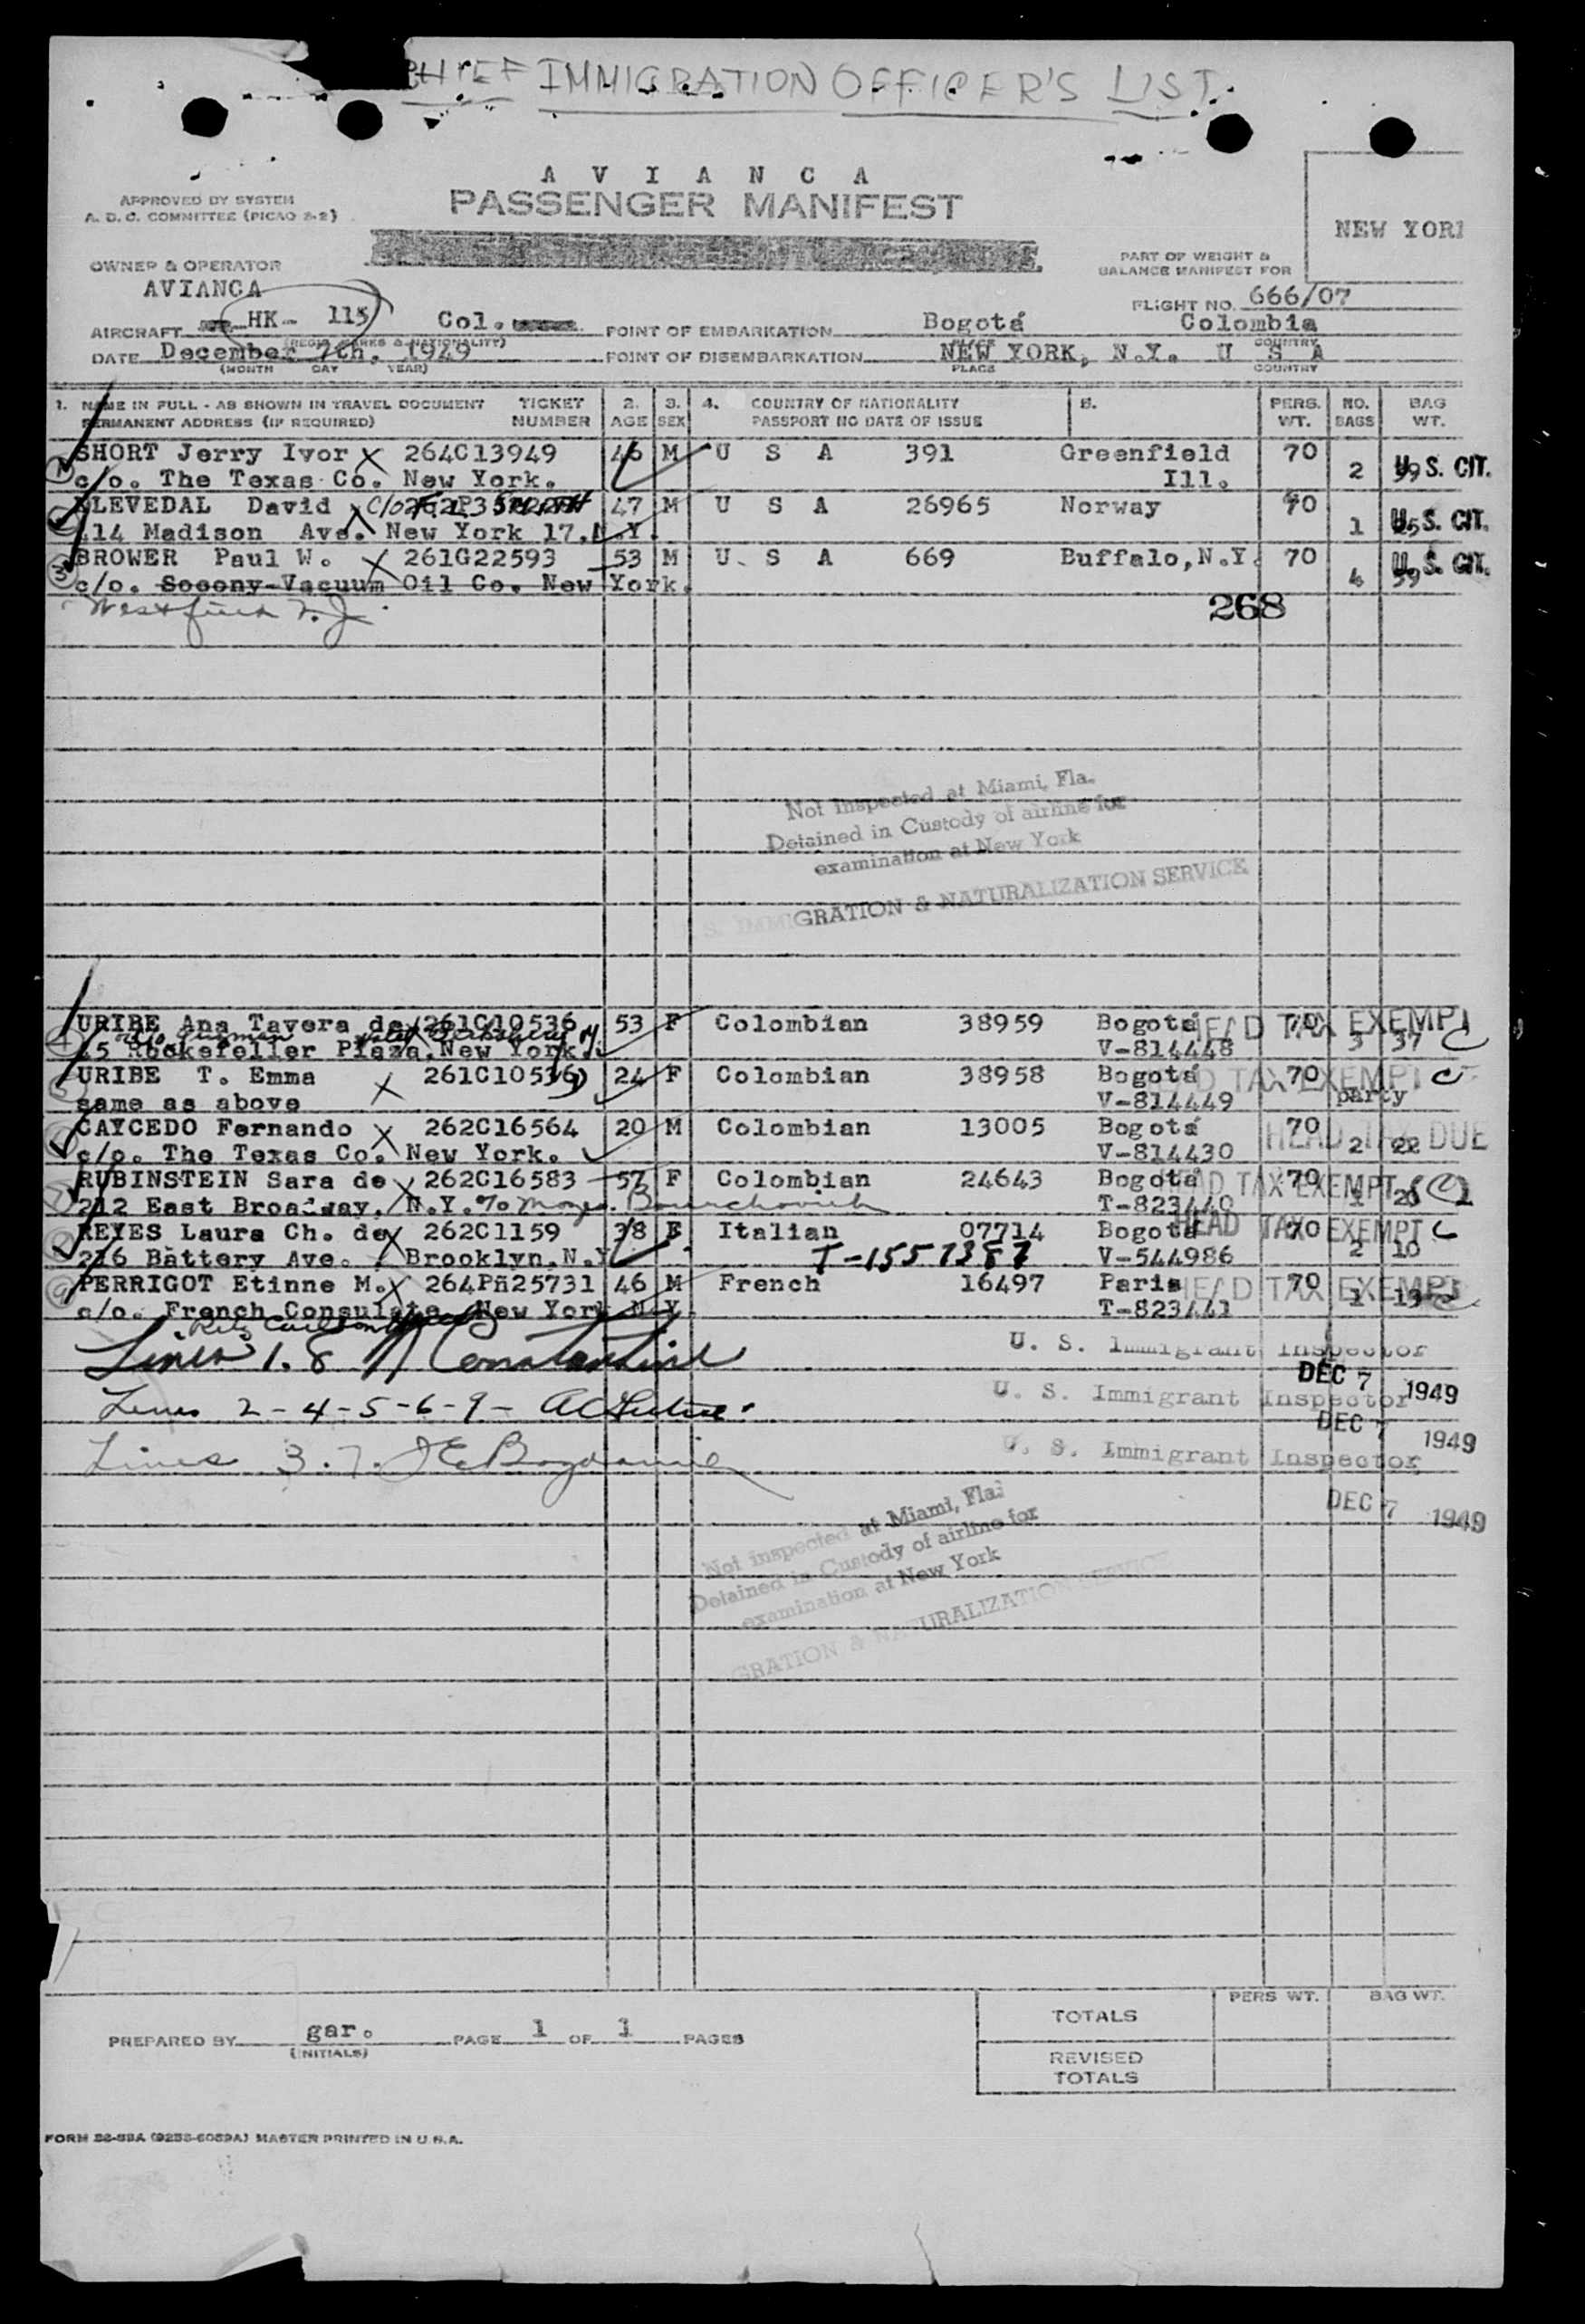 CHIEF IMMIGRATION OFFICER'S LIST.
A V I A N C A
PASSENGER MANIFEST
APPROVED BY SYSTEM
A. D. C. COMMITTEE (PICAO 2-2)
NEW YOR
OWNER & OPERATOR
AVIANCA
PART OF WEIGHT &
BALANCE MANIFEST FOR
FLIGHT NO. 666/07
AIRCRAFT HK- 115 Col. POINT OF EMBARKATION Bogotá Colombia
(REGIS. MARKS & NATIONALITY) PLACE COUNTRY
DATE December 7th, 1949 POINT OF DISEMBARKATION NEW YORK, N.Y. U S A
(MONTH DAY YEAR) PLACE COUNTRY
1. NAME IN FULL - AS SHOWN IN TRAVEL DOCUMENT TICKET 2. 3. 4. COUNTRY OF NATIONALITY 5. PERS. NO. BAG
PERMANENT ADDRESS (IF REQUIRED) NUMBER AGE SEX PASSPORT NO DATE OF ISSUE WT. BAGS WT.
SHORT Jerry Ivor 264C13949 46 M U S A 391 Greenfield 70
c/o. The Texas Co. New York. Ill. 2 U.S. CIT.
KLEVEDAL David c/o 47 M U S A 26965 Norway 70
114 Madison Ave. New York 17. N.Y. 1 U.S. CIT.
BROWER Paul W. 261G22593 53 M U. S A 669 Buffalo, N.Y. 70
c/o. Socony-Vacuum Oil Co. New York. 4 U.S. CIT.
Westfield N.J.
268
Not inspected at Miami, Fla.
Detained in Custody of airline for
examination at New York
U.S. IMMIGRATION & NATURALIZATION SERVICE
URIBE Ana Tavera de 261C10536 53 F Colombian 38959 Bogotá 70 HEAD TAX EXEMPT
15 Rockefeller Plaza, New York. V-814448 3 37
URIBE T. Emma 261C10536 24 F Colombian 38958 Bogotá 70 HEAD TAX EXEMPT
same as above V-814449 party
CAYCEDO Fernando 262C16564 20 M Colombian 13005 Bogotá 70 HEAD TAX DUE
c/o. The Texas Co. New York. V-814430 2 22
RUBINSTEIN Sara de 262C16583 57 F Colombian 24643 Bogotá 70 HEAD TAX EXEMPT
212 East Broadway. N.Y. T-823440 1 20
REYES Laura Ch. de 262C1159 38 F Italian 07714 Bogotá 70 HEAD TAX EXEMPT
216 Battery Ave. Brooklyn, N.Y. T-1557387 V-544986 2 10
PERRIGOT Etinne M. 264Pñ25731 46 M French 16497 Paris 70 HEAD TAX EXEMPT
c/o. French Consulate New York N.Y. T-823441 1 13
Lines 1. 8 Constantine U. S. Immigrant Inspector
DEC 7 1949
Lines 2-4-5-6-9- U. S. Immigrant Inspector
DEC 7 1949
Lines 3.7. U. S. Immigrant Inspector
DEC 7 1949
Not inspected at Miami, Fla.
Detained in Custody of airline for
examination at New York
GRATION & NATURALIZATION SERVICE
PERS WT. BAG WT.
TOTALS
PREPARED BY gar. PAGE 1 OF 1 PAGES
(INITIALS)
REVISED
TOTALS
MASTER PRINTED IN U.S.A.